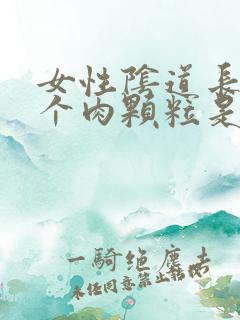 女性陰道長
个肉顆粒是
一騎绝塵去
未经同意禁止转载